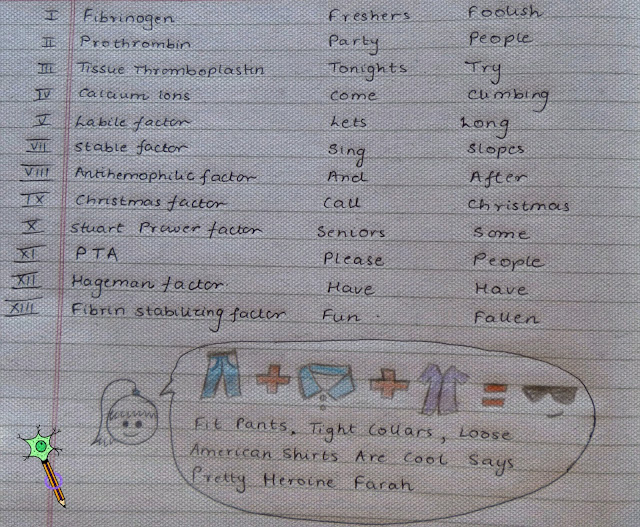 I Fibrinogen Freshers Foolish
II Prothrombin Party People
III Tissue Thromboplastin Tonights Try
IV Calcium Ions Come Climbing
V Labile factor Lets Long
VII Stable factor Sing Slopes
VIII Antihemophilic factor And After
IX Christmas factor Call Christmas
X Stuart Prower factor Seniors Some
XI PTA Please People
XII Hageman factor Have Have
XIII Fibrin stabilizing factor Fun Fallen
Fit Pants, Tight Collars, Loose
American Shirts Are Cool Says
Pretty Heroine Farah